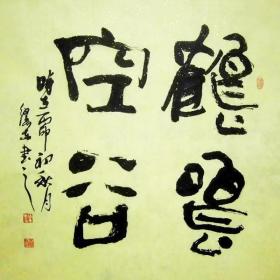 鶴鳴
空谷
時在丙申初秋月
書之